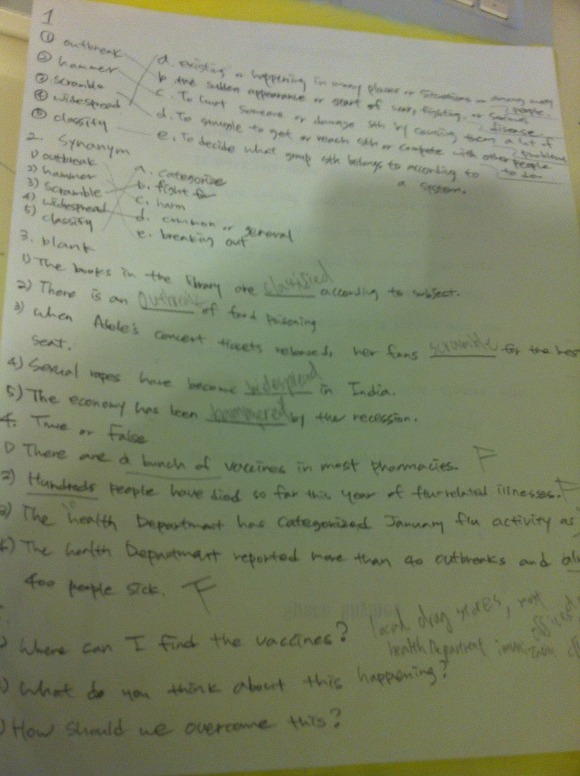 1
① outbreak
② hammer
③ scramble
④ widespread
⑤ classify
a. Existing or happening in many places or situations or among many people.
b. the sudden appearance or start of war, fighting, or serious disease
c. To hurt someone or damage sth by causing them a lot of problems
d. To struggle to get or reach sth or compete with other people to do
e. To decide what group sth belongs to according to a system.
2. Synonym
1) outbreak
2) hammer
3) scramble
4) widespread
5) classify
a. categorize
b. fight for
c. harm
d. common or general
e. breaking out
3. blank
1) The books in the library are classified according to subject.
2) There is an outbreak of food poisoning
3) When Adele's concert tickets released, her fans scramble for the best
seat.
4) Sexual rapes have become widespread in India.
5) The economy has been hammered by the recession.
4. True or False
1) There are a bunch of vaccines in most pharmacies. F
2) Hundreds people have died so far this year of flu-related illnesses. F
3) The health Department has categorized January flu activity as
4) The health Department reported more than 40 outbreaks and
400 people sick. F
Where can I find the vaccines? local drug stores, most
health Department
What do you think about this happening?
How should we overcome this?